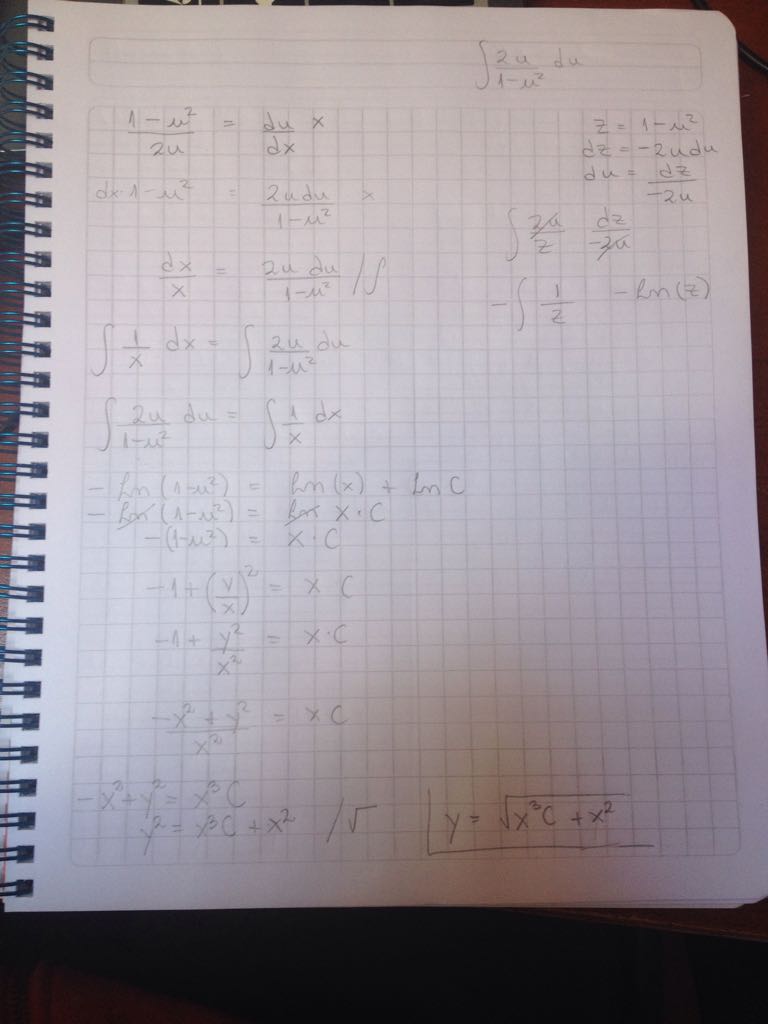 ∫ 2u/(1-u²) du
(1-u²)/2u = du/dx x
z = 1-u²
dz = -2u du
du = dz/-2u
dx·1-u² = 2u du/(1-u²) x
∫ 2u/z dz/-2u
dx/x = 2u du/(1-u²) /∫
-∫ 1/z -ln(z)
∫ 1/x dx = ∫ 2u/(1-u²) du
∫ 2u/(1-u²) du = ∫ 1/x dx
- ln(1-u²) = ln(x) + ln C
- ln(1-u²) = ln x·C
-(1-u²) = x·C
-1 + (y/x)² = x C
-1 + y²/x² = x·C
(-x² + y²)/x² = x C
-x² + y² = x³ C
y² = x³C + x² /√
y = √(x³C + x²)